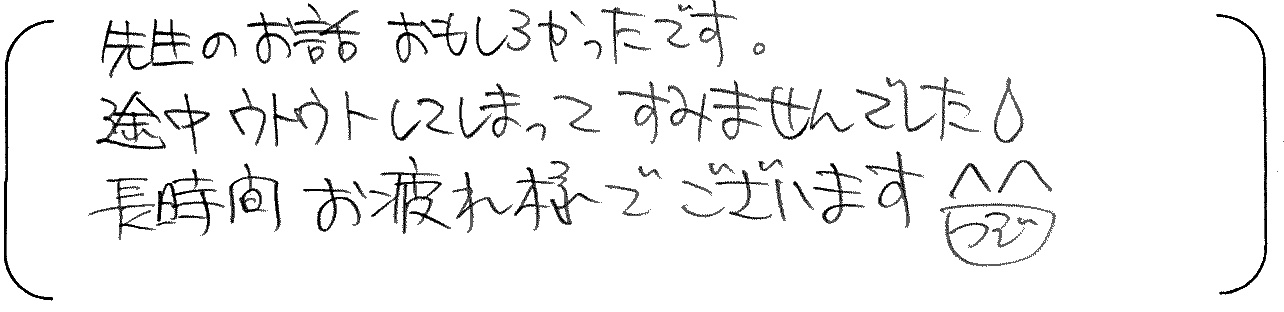 先生のお話 おもしろかったです。
途中ウトウトしてしまって すみませんでした
長時間 お疲れ様でございます